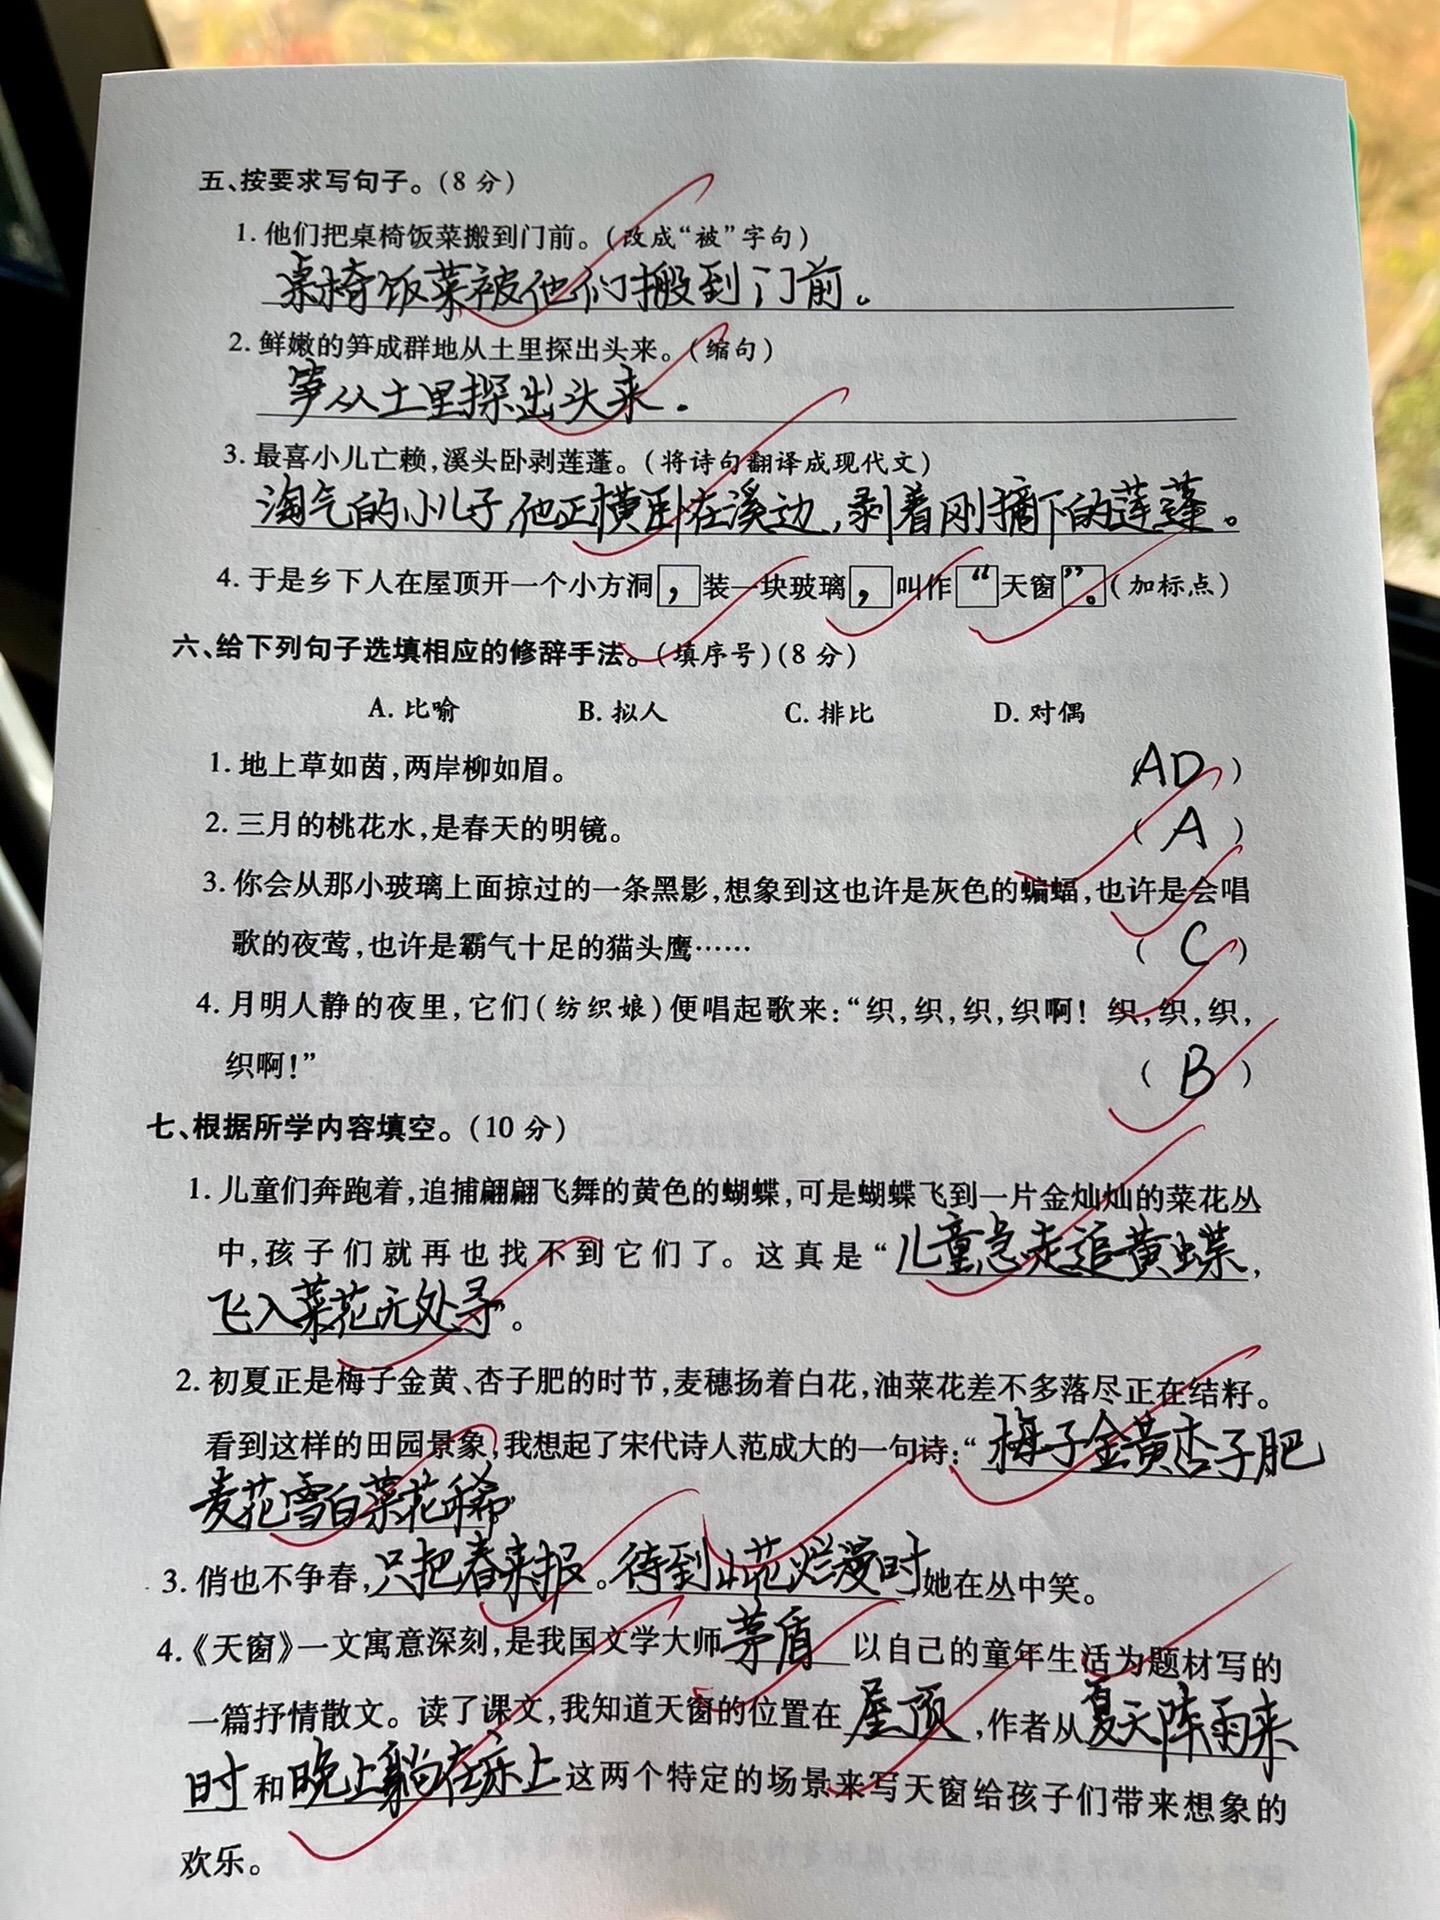 五、按要求写句子。(8 分)
1. 他们把桌椅饭菜搬到门前。(改成“被”字句)
桌椅饭菜被他们搬到门前。
2. 鲜嫩的笋成群地从土里探出头来。(缩句)
笋从土里探出头来.
3. 最喜小儿亡赖,溪头卧剥莲蓬。(将诗句翻译成现代文)
淘气的小儿子,他正横卧在溪边,剥着刚摘下的莲蓬。
4. 于是乡下人在屋顶开一个小方洞,装一块玻璃,叫作“天窗”。(加标点)
六、给下列句子选填相应的修辞手法。(填序号)(8 分)
A. 比喻 B. 拟人 C. 排比 D. 对偶
1. 地上草如茵,两岸柳如眉。 (AD)
2. 三月的桃花水,是春天的明镜。 (A)
3. 你会从那小玻璃上面掠过的一条黑影,想象到这也许是灰色的蝙蝠,也许是会唱
歌的夜莺,也许是霸气十足的猫头鹰…… (C)
4. 月明人静的夜里,它们(纺织娘)便唱起歌来:“织,织,织,织啊! 织,织,织,
织啊!” (B)
七、根据所学内容填空。(10 分)
1. 儿童们奔跑着,追捕翩翩飞舞的黄色的蝴蝶,可是蝴蝶飞到一片金灿灿的菜花丛
中,孩子们就再也找不到它们了。这真是“儿童急走追黄蝶,
飞入菜花无处寻”。
2. 初夏正是梅子金黄、杏子肥的时节,麦穗扬着白花,油菜花差不多落尽正在结籽。
看到这样的田园景象,我想起了宋代诗人范成大的一句诗:“梅子金黄杏子肥
麦花雪白菜花稀”
3. 俏也不争春,只把春来报。待到山花烂漫时,她在丛中笑。
4.《天窗》一文寓意深刻,是我国文学大师茅盾以自己的童年生活为题材写的
一篇抒情散文。读了课文,我知道天窗的位置在屋顶,作者从夏天阵雨来
时和晚上躺在床上这两个特定的场景来写天窗给孩子们带来想象的
欢乐。